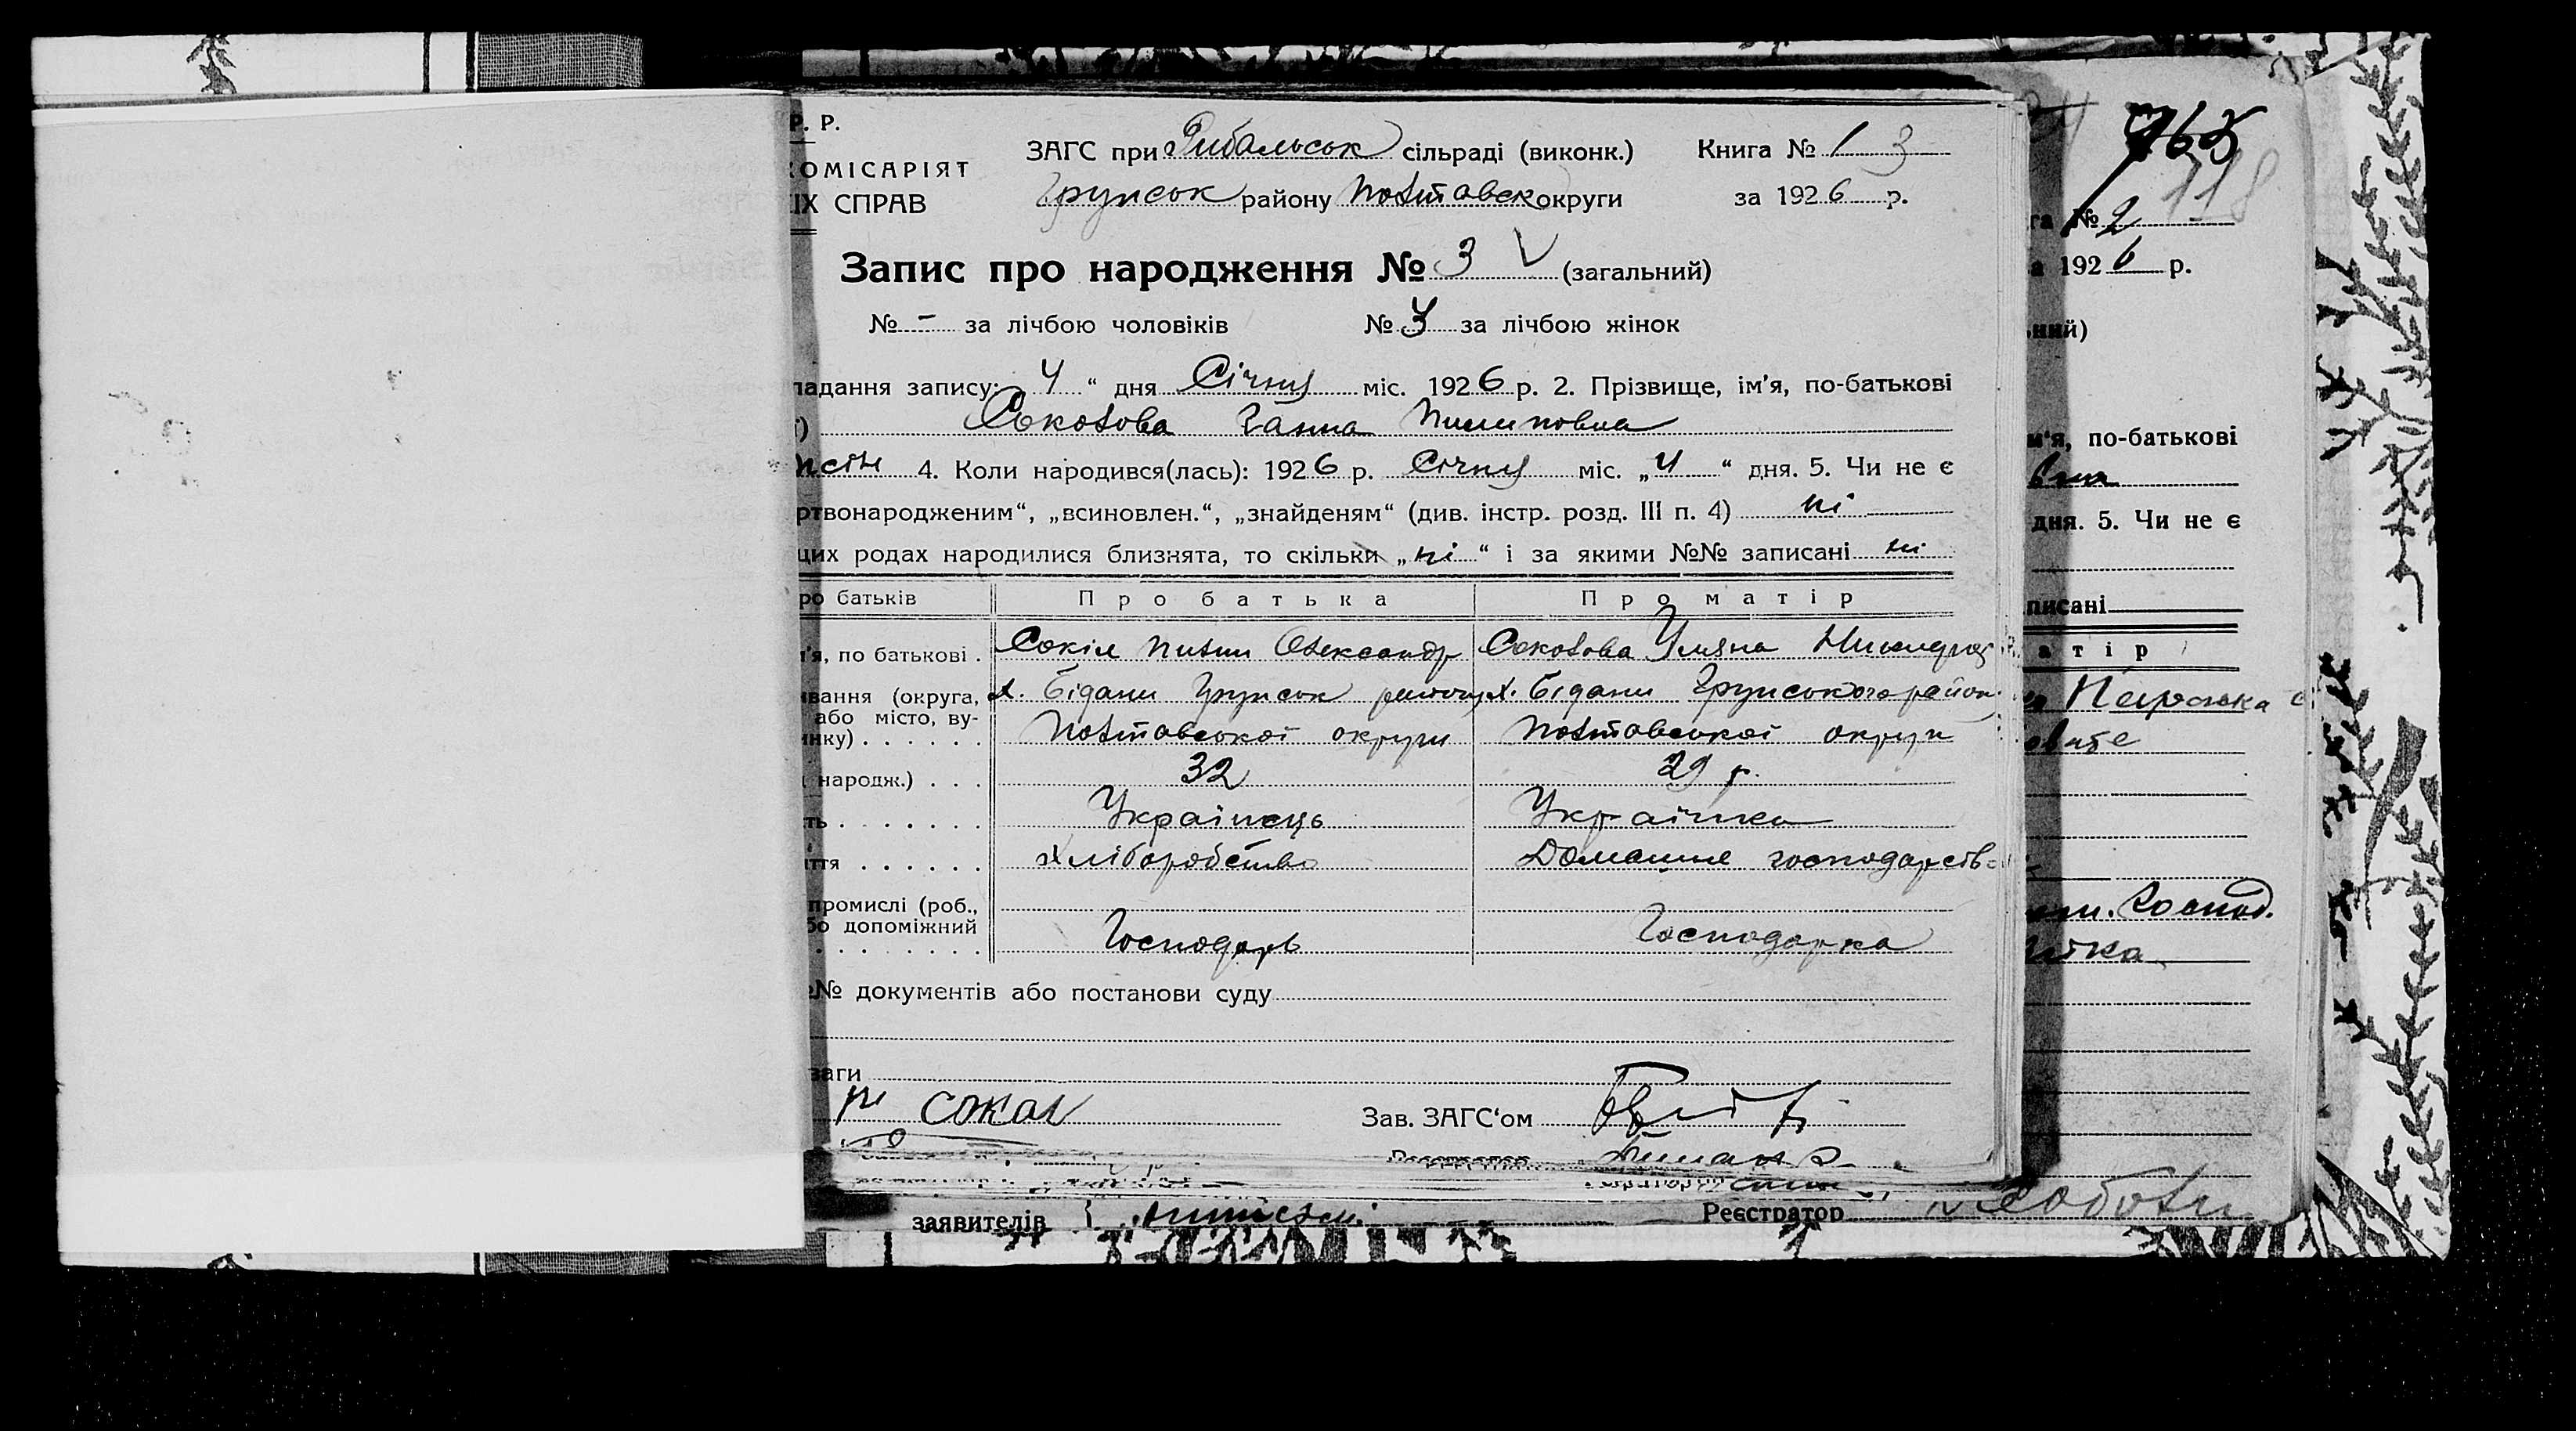 Р. Р.
ЗАГС при Рибальськ сільраді (виконк.) Книга № 1 3
КОМІСАРІЯТ
Грунськ району Полтавськ округи за 1926 р.
ІХ СПРАВ
Запис про народження № 3 V (загальний)
№ - за лічбою чоловіків № 3 за лічбою жінок
ладання запису: 4 “ дня Січня міс. 1926 р. 2. Прізвище, ім'я, по-батькові
Соколова Ганна Пилиповна
4. Коли народився(лась): 1926 р. Січня міс. „4“ дня. 5. Чи не є
ртвонародженим“, „всиновлен.“, „знайденям“ (див. інстр. розд. III п. 4) ні
цих родах народилися близнята, то скільки „ні“ і за якими №№ записані ні
ро батьків Про батька Про матір
я, по батькові . Сокіл Пилип Олександр Соколова Уляна
вання (округа, х. Бідани Грунськ району х. Бідани Грунського район
або місто, ву-
нку) . . . . . . Полтавської округи Полтавської округи
народж.) . . . 32 29 р.
ть . . . . . . . Українець Українка
ття . . . . . . Хліборобство Домашнє господарств
промислі (роб.,
бо допоміжний
Господарь Господарка
№ документів або постанови суду
ваги
Сокол Зав. ЗАГС'ом
заявителів Реєстратор
765
118
га № 2
а 1926 р.
ьний)
м'я, по-батькові
дня. 5. Чи не є
писані
атір